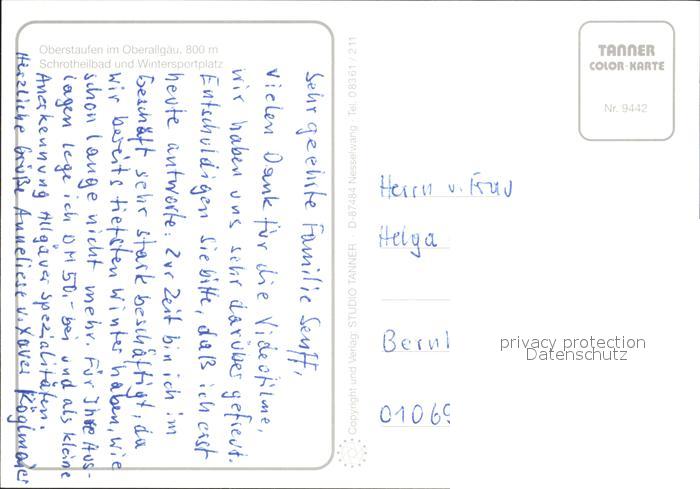 Oberstaufen im Oberallgäu, 800 m
Schrotheilbad und Wintersportplatz
Sehr geehrte Familie Senft,
Vielen Dank für die Videofilme,
wir haben uns sehr darüber gefreut.
Entschuldigen Sie bitte, daß ich erst
heute antworte: Zur Zeit bin ich im
Geschäft sehr stark beschäftigt, da
wir bereits tiefsten Winter haben, wie
schon lange nicht mehr. Für Ihre Aus-
lagen lege ich DM 50,- bei und als kleine
Anerkennung Allgäuer Spezialitäten.
Herzliche Grüße Anneliese u. Xaver Köglmaier
Copyright und Verlag: STUDIO TANNER D-87484 Nesselwang · Tel. 08361 / 211
TANNER
COLOR-KARTE
Nr. 9442
Herrn u. Frau
Helga
Bernl
01069
privacy protection
Datenschutz